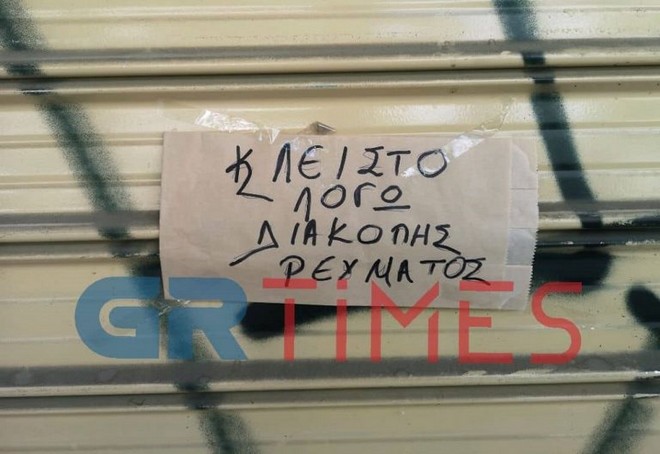 ΚΛΕΙΣΤΟ
ΛΟΓΩ
ΔΙΑΚΟΠΗΣ
ΡΕΥΜΑΤΟΣ
GRTIMES